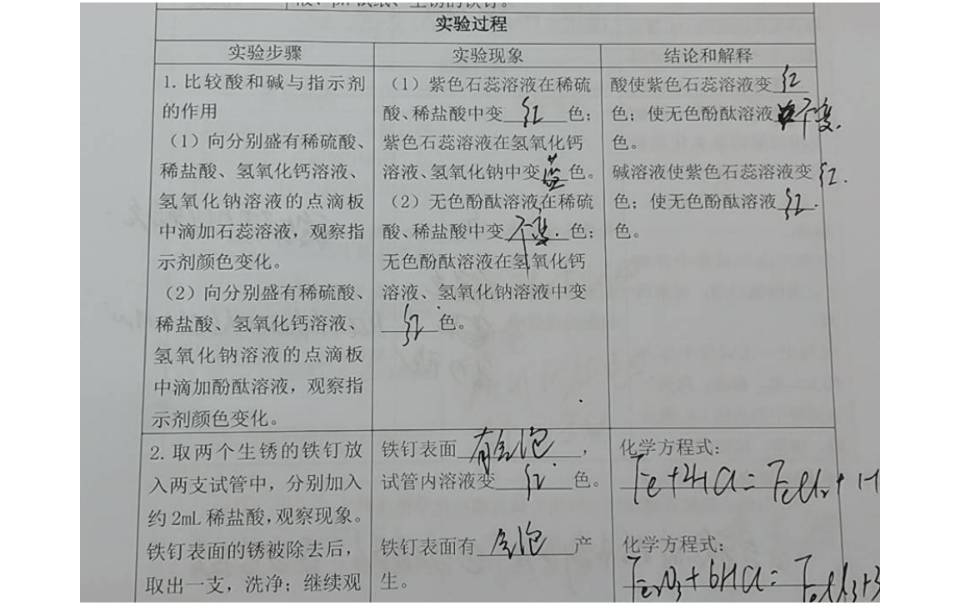 液、pH 试纸、生锈的铁钉。
实验过程
实验步骤
实验现象
结论和解释
1. 比较酸和碱与指示剂
的作用
（1）向分别盛有稀硫酸、
稀盐酸、氢氧化钙溶液、
氢氧化钠溶液的点滴板
中滴加石蕊溶液，观察指
示剂颜色变化。
（2）向分别盛有稀硫酸、
稀盐酸、氢氧化钙溶液、
氢氧化钠溶液的点滴板
中滴加酚酞溶液，观察指
示剂颜色变化。
（1）紫色石蕊溶液在稀硫
酸、稀盐酸中变 红 色；
紫色石蕊溶液在氢氧化钙
溶液、氢氧化钠中变 蓝 色。
（2）无色酚酞溶液在稀硫
酸、稀盐酸中变 不变 色；
无色酚酞溶液在氢氧化钙
溶液、氢氧化钠溶液中变
红 色。
酸使紫色石蕊溶液变 红
色；使无色酚酞溶液 不变.
色。
碱溶液使紫色石蕊溶液变 红.
色；使无色酚酞溶液 红.
色。
2. 取两个生锈的铁钉放
入两支试管中，分别加入
约 2mL 稀盐酸，观察现象。
铁钉表面的锈被除去后，
取出一支，洗净；继续观
铁钉表面 有气泡 ，
试管内溶液变 红 色。
铁钉表面有 气泡 产
生。
化学方程式：
Fe+2HCl=FeCl₂+H
化学方程式：
Fe₂O₃+6HCl=FeCl₃+3